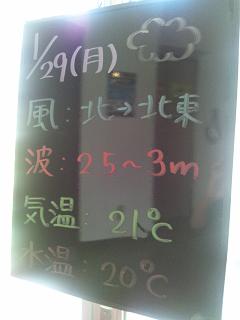 1/29(月)
風:北→北東
波:2.5~3m
気温:21℃
水温:20℃